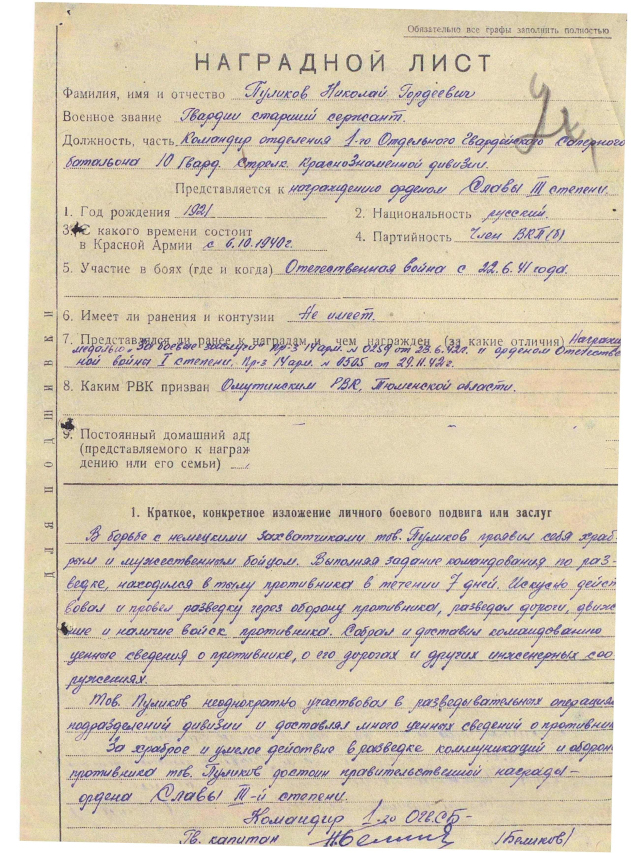 Обязательно все графы заполнить полностью
НАГРАДНОЙ ЛИСТ
Фамилия, имя и отчество Пуликов Николай Гордеевич
Военное звание Гвардии старший сержант.
Должность, часть Командир отделения 1-го Отдельного Гвардейского Саперного
батальона 10 Гвард. Стрелк. Краснознаменной дивизии.
Представляется к награждению орденом Славы III степени.
1. Год рождения 1921
2. Национальность русский.
3. С какого времени состоит
в Красной Армии с 6.10.1940г.
4. Партийность Член ВКП(б)
5. Участие в боях (где и когда) Отечественная война с 22.6.41 года.
6. Имеет ли ранения и контузии Не имеет.
7. Представлялся ли ранее к наградам и чем награжден (за какие отличия) Награжд
медалью „За боевые заслуги" пр-з 14 арм. № 0259 от 23.6.42г. и орденом Отечестве
ной война I степени. Пр-з 14 арм. № 0505 от 29.11.42г.
8. Каким РВК призван Омутинским РВК, Тюменской области.
9. Постоянный домашний адр
(представляемого к награж
дению или его семьи)
ДЛЯ ПОДШИВКИ
1. Краткое, конкретное изложение личного боевого подвига или заслуг
В борьбе с немецкими захватчиками тов. Пуликов проявил себя храб-
рым и мужественным бойцом. Выполняя задание командования по раз-
ведке, находился в тылу противника в течении 7 дней. Искусно дейст
вовал и провел разведку через оборону противника, разведал дороги, движе
ние и наличие войск противника. Собрал и доставил командованию
ценные сведения о противнике, о его дорогах и других инженерных соо
ружениях.
Тов. Пуликов неоднократно участвовал в разведывательных операция
подразделений дивизии и доставлял много ценных сведений о противник
За храброе и умелое действие в разведке коммуникаций и оборон
противника тов. Пуликов достоин правительственной награды –
ордена Славы III-й степени.
Командир 1-го ОГСБ-
Гв. капитан (Беликов)